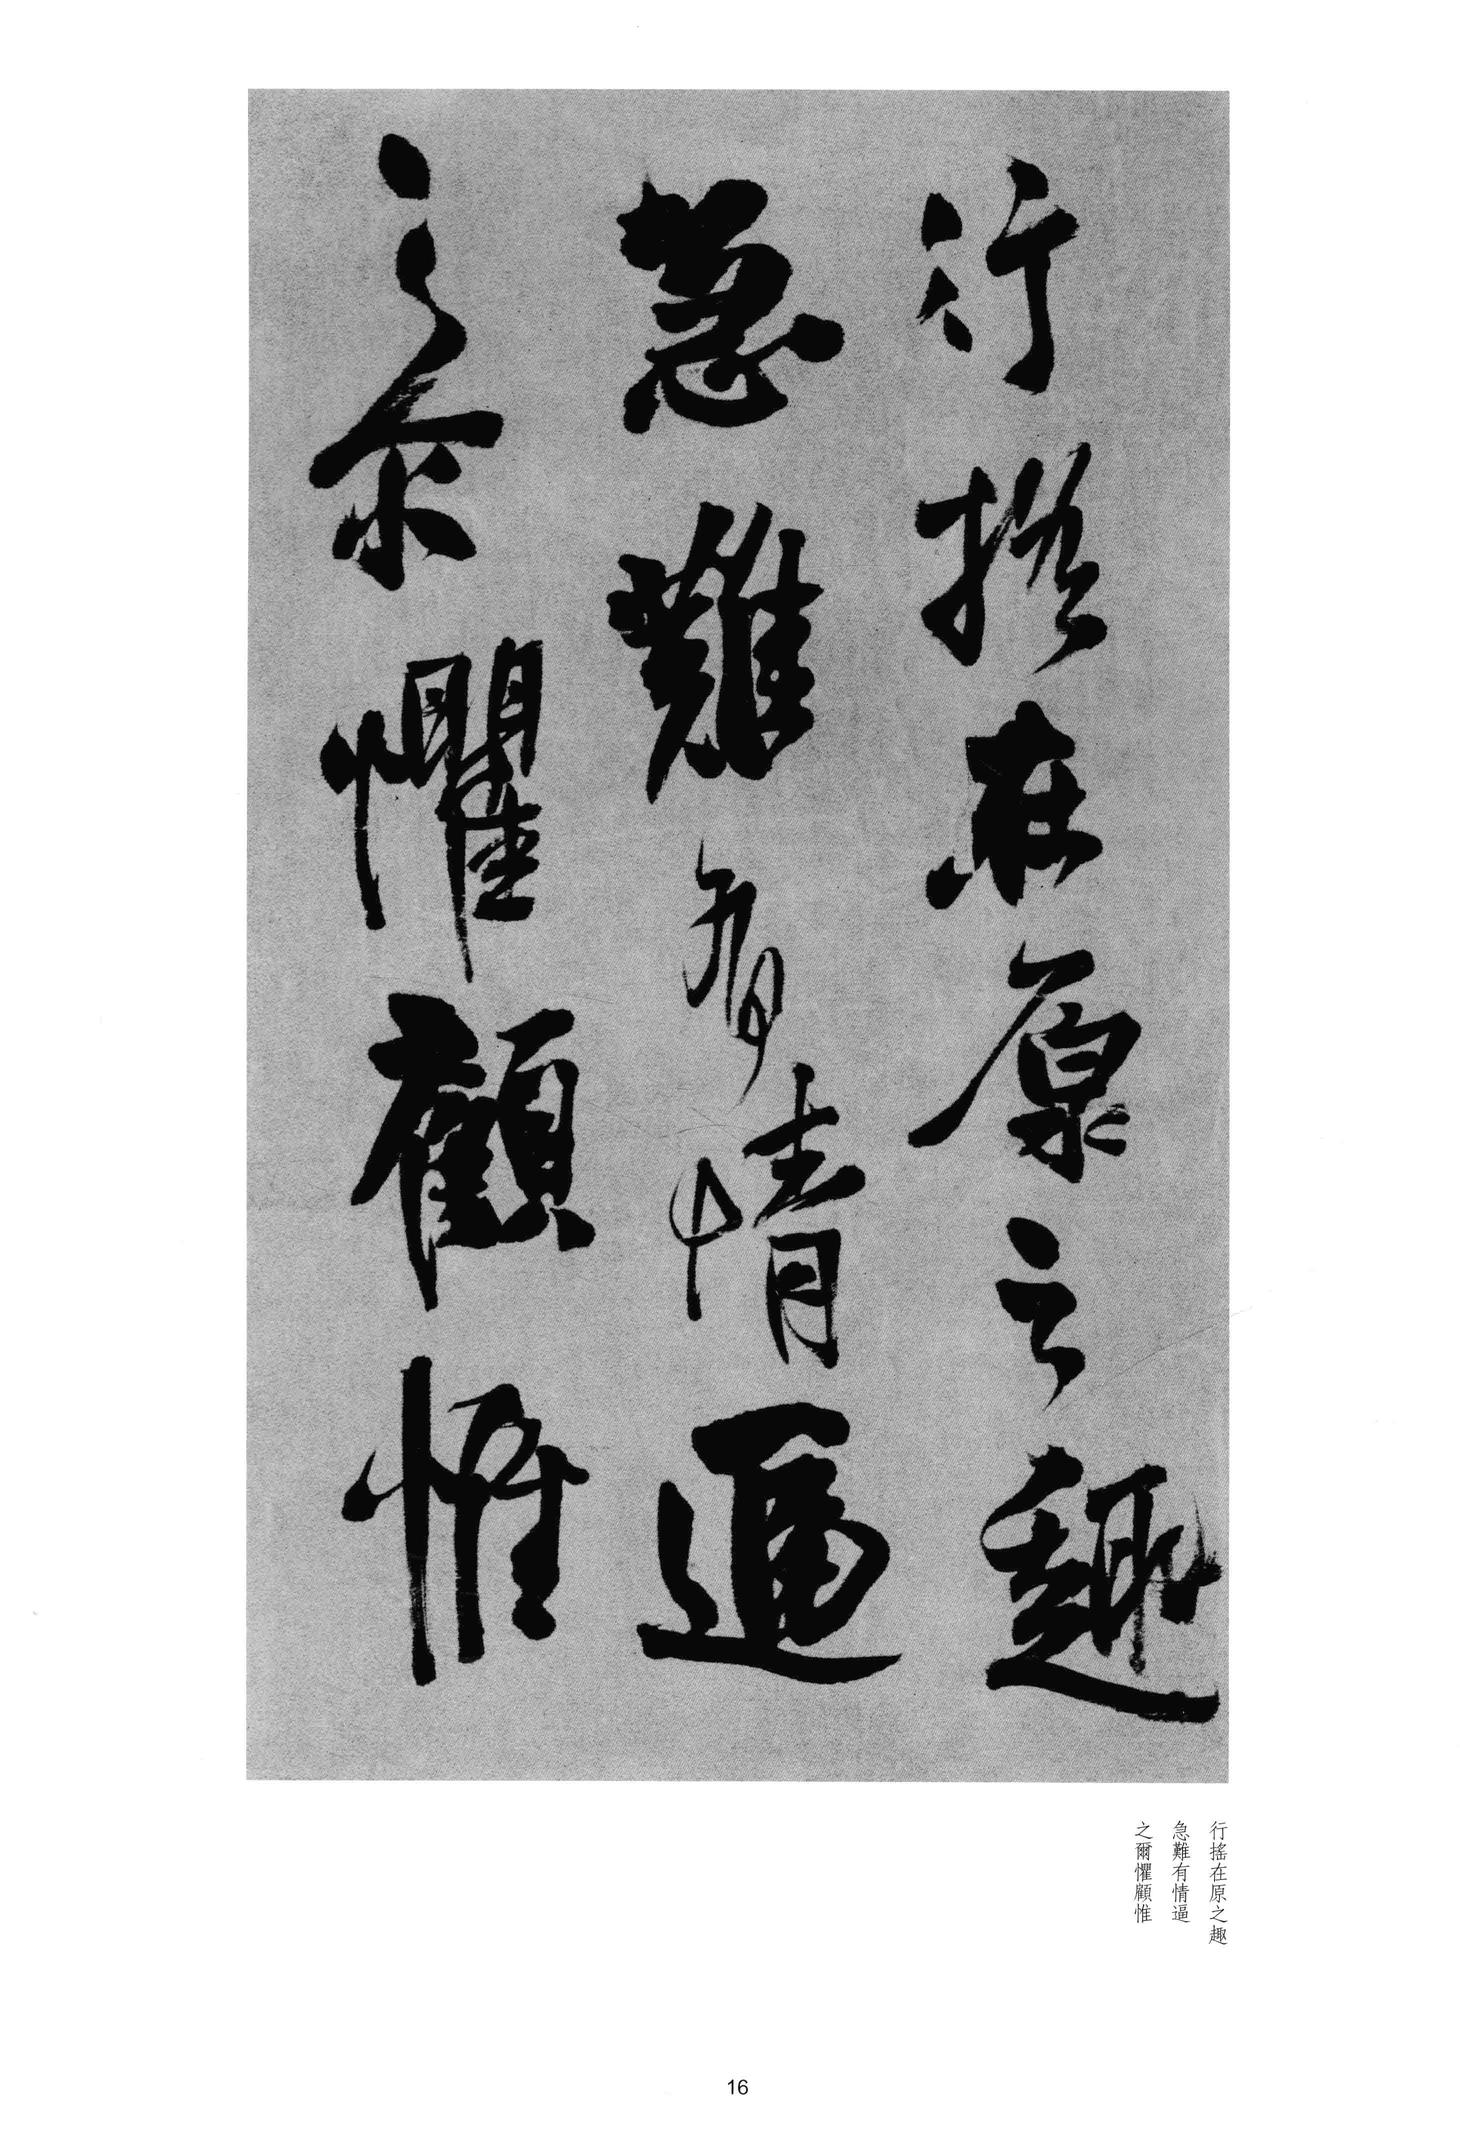 行摇在原之趣
急難有情逼
之尔懼顧惟
行搖在原之趣
急難有情逼
之爾懼顧惟
16